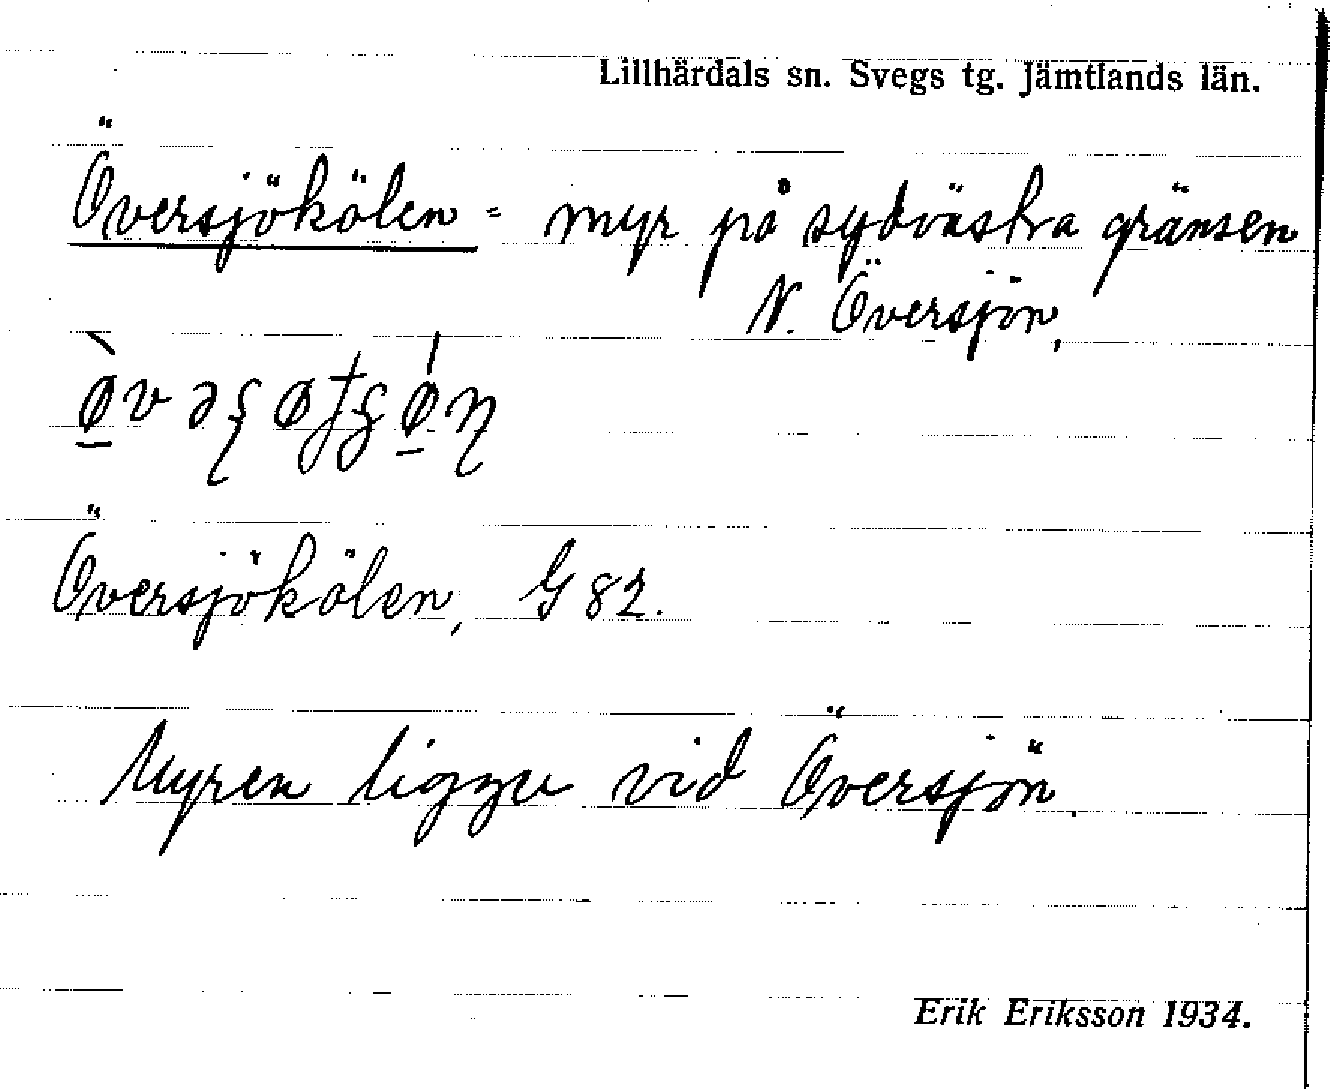 Lillhärdals sn. Svegs tg. Jämtlands län.
Översjökölen = myr på sydvästra gränsen
N. Översjön,
Översjökölen, G 82.
Myren ligger vid Översjön.
Erik Eriksson 1934.